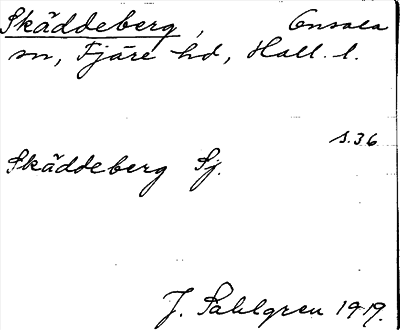 Skäddeberg, Onsala
sn, Fjäre hd, Hall. l.
s. 36
Skäddeberg Sj.
J. Sahlgren 1919.